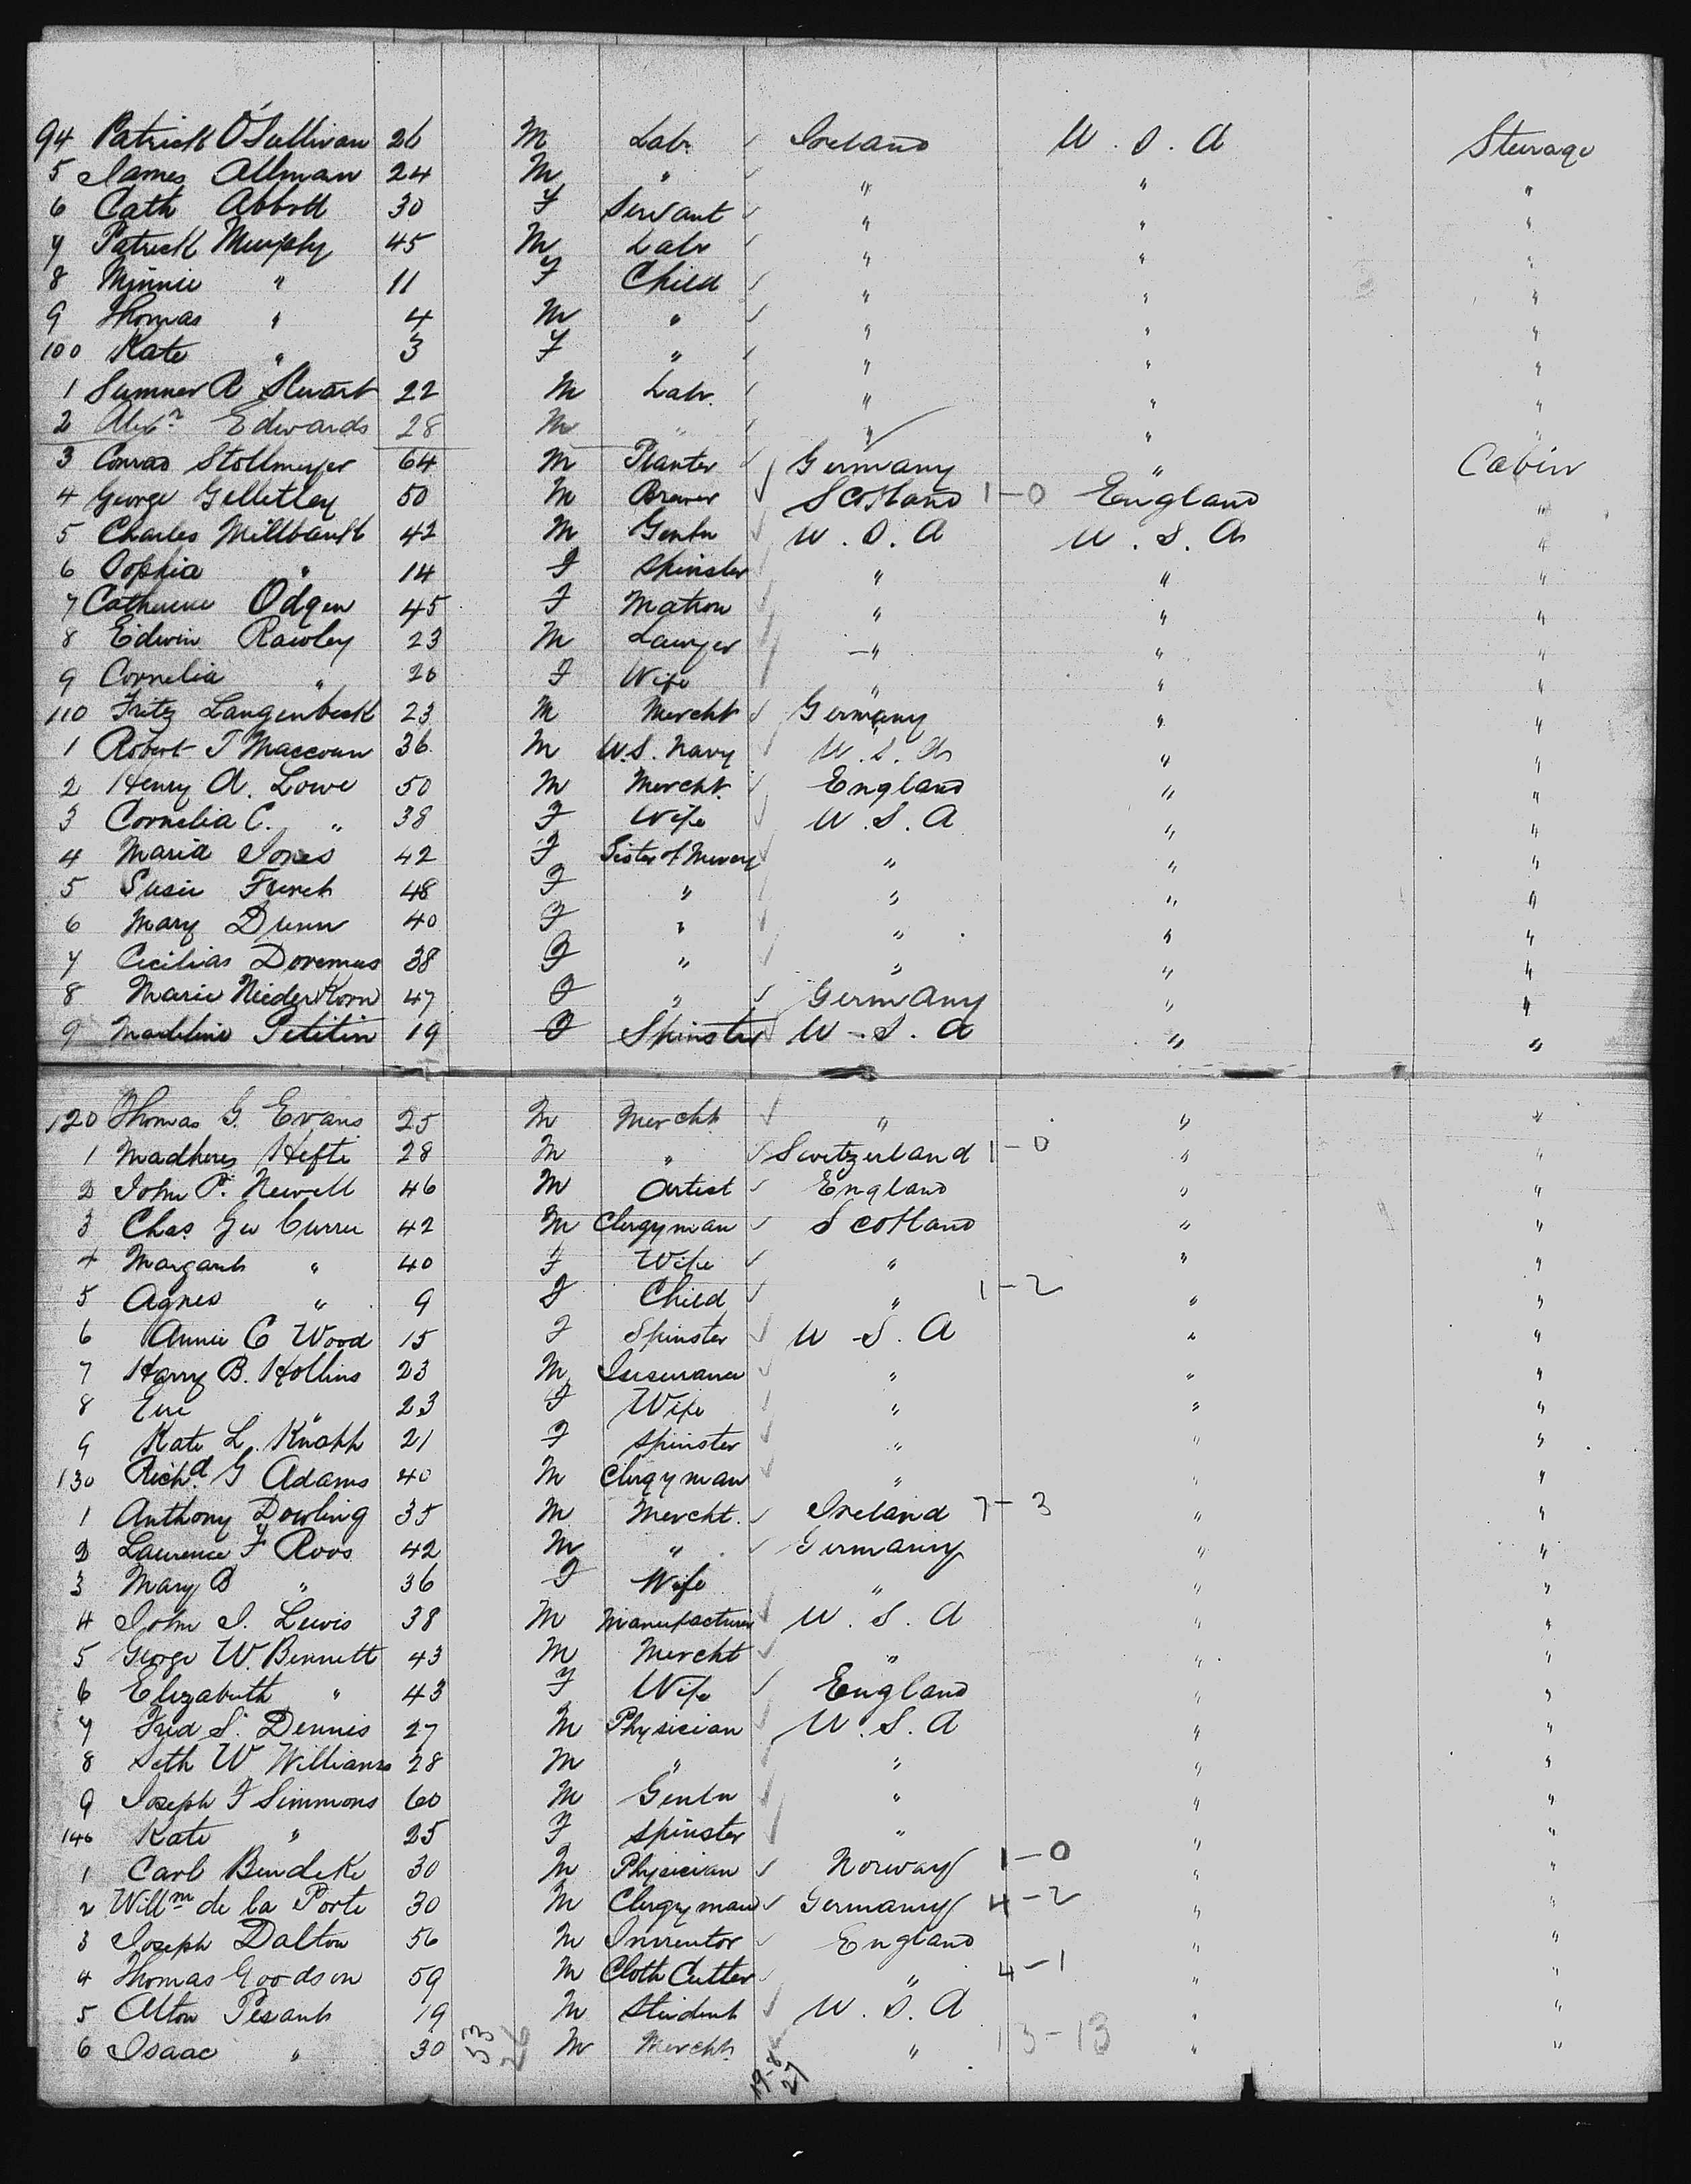 94 Patrick O'Sullivan 26 M Labr Ireland U.S.A Steerage
5 James Allman 24 M " " " "
6 Cath Abbott 30 F Servant " " "
7 Patrick Murphy 45 M Labr " " "
8 Minnie " 11 F Child " " "
9 Thomas " 4 M " " " "
100 Kate " 3 F " " " "
1 Sumner R Stewart 22 M Labr. " " "
2 Alexr Edwards 28 M " " " "
3 Conrad Stollmeyer 64 M Planter Germany " Cabin
4 George Gelletley 50 M Brewer Scotland 1-0 England "
5 Charles Millbank 42 M Gentn U.S.A U.S.A "
6 Sophia " 14 F Spinster " " "
7 Catherine Odgen 45 F Matron " " "
8 Edwin Rawley 23 M Lawyer " " "
9 Cornelia " 26 F Wife " " "
110 Fritz Langenbeck 23 M Mercht Germany " "
1 Robert T Maccoun 36 M U.S. Navy U.S.A " "
2 Henry A. Lowe 50 M Mercht. England " "
3 Cornelia C. " 38 F Wife U.S.A " "
4 Maria Jones 42 F Sister of Mercy " " "
5 Susie French 48 F " " " "
6 Mary Dunn 40 F " " " "
7 Cicilias Doremus 38 F " " " "
8 Marie NiederKorn 47 F " Germany " "
9 Madeline Petitin 19 F Spinster U.S.A " "
120 Thomas G. Evans 25 M Mercht " " "
1 Hefti 28 M " Switzerland 1-0 " "
2 John P. Newell 46 M Artist England " "
3 Chas. Geo Currie 42 M Clergyman Scotland " "
4 Margaret " 40 F Wife " " "
5 Agnes " 9 F Child " 1-2 " "
6 Annie C Wood 15 F Spinster U.S.A " "
7 Harry B. Hollins 23 M Insurance " " "
8 " 23 F Wife " " "
9 Kate L. Knapp 21 F Spinster " " "
130 Richd. G Adams 40 M Clergyman " " "
1 Anthony Dowling 35 M Mercht. Ireland 7-3 " "
2 Laurence F Roos 42 M " Germany " "
3 Mary B " 36 F Wife " " "
4 John J. Lewis 38 M Manufacturer U.S.A " "
5 George W. Bennett 43 M Mercht " " "
6 Elizabeth " 43 F Wife England " "
7 Fred S. Dennis 27 M Physician U.S.A " "
8 Seth W Williams 28 M " " " "
9 Joseph F Simmons 60 M Gentn " " "
140 Kate " 25 F Spinster " " "
1 Carl Bendeke 30 M Physician Norway 1-0 " "
2 Willm de la Porte 30 M Clergyman Germany 4-2 " "
3 Joseph Dalton 56 M Inventor England " "
4 Thomas Goodson 59 M Cloth Cutter " 4-1 " "
5 Alton Pesant 19 M Student U.S.A " "
6 Isaac " 30 53 26 M Mercht. " 13-13 " "
19-8
27